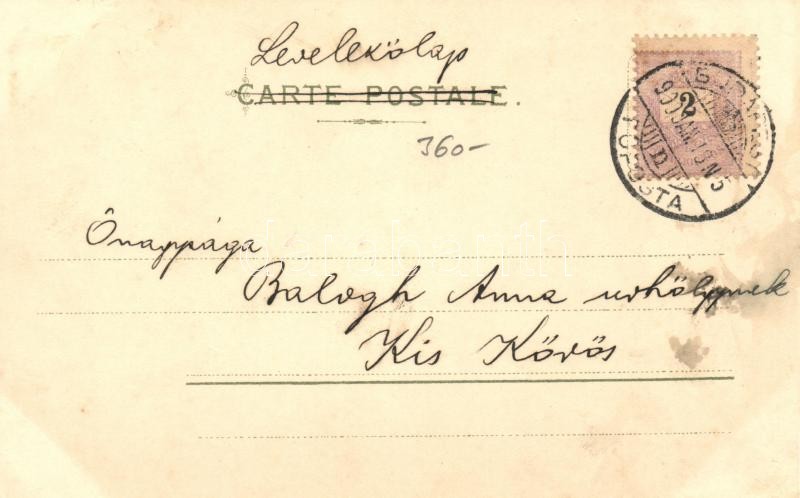 Levelezőlap
CARTE POSTALE.
2
BUDAPEST
900 JAN. 13 N 5
FŐPOSTA
360-
Őnagysága
Balogh Anna urhölgynek
Kis Kőrös